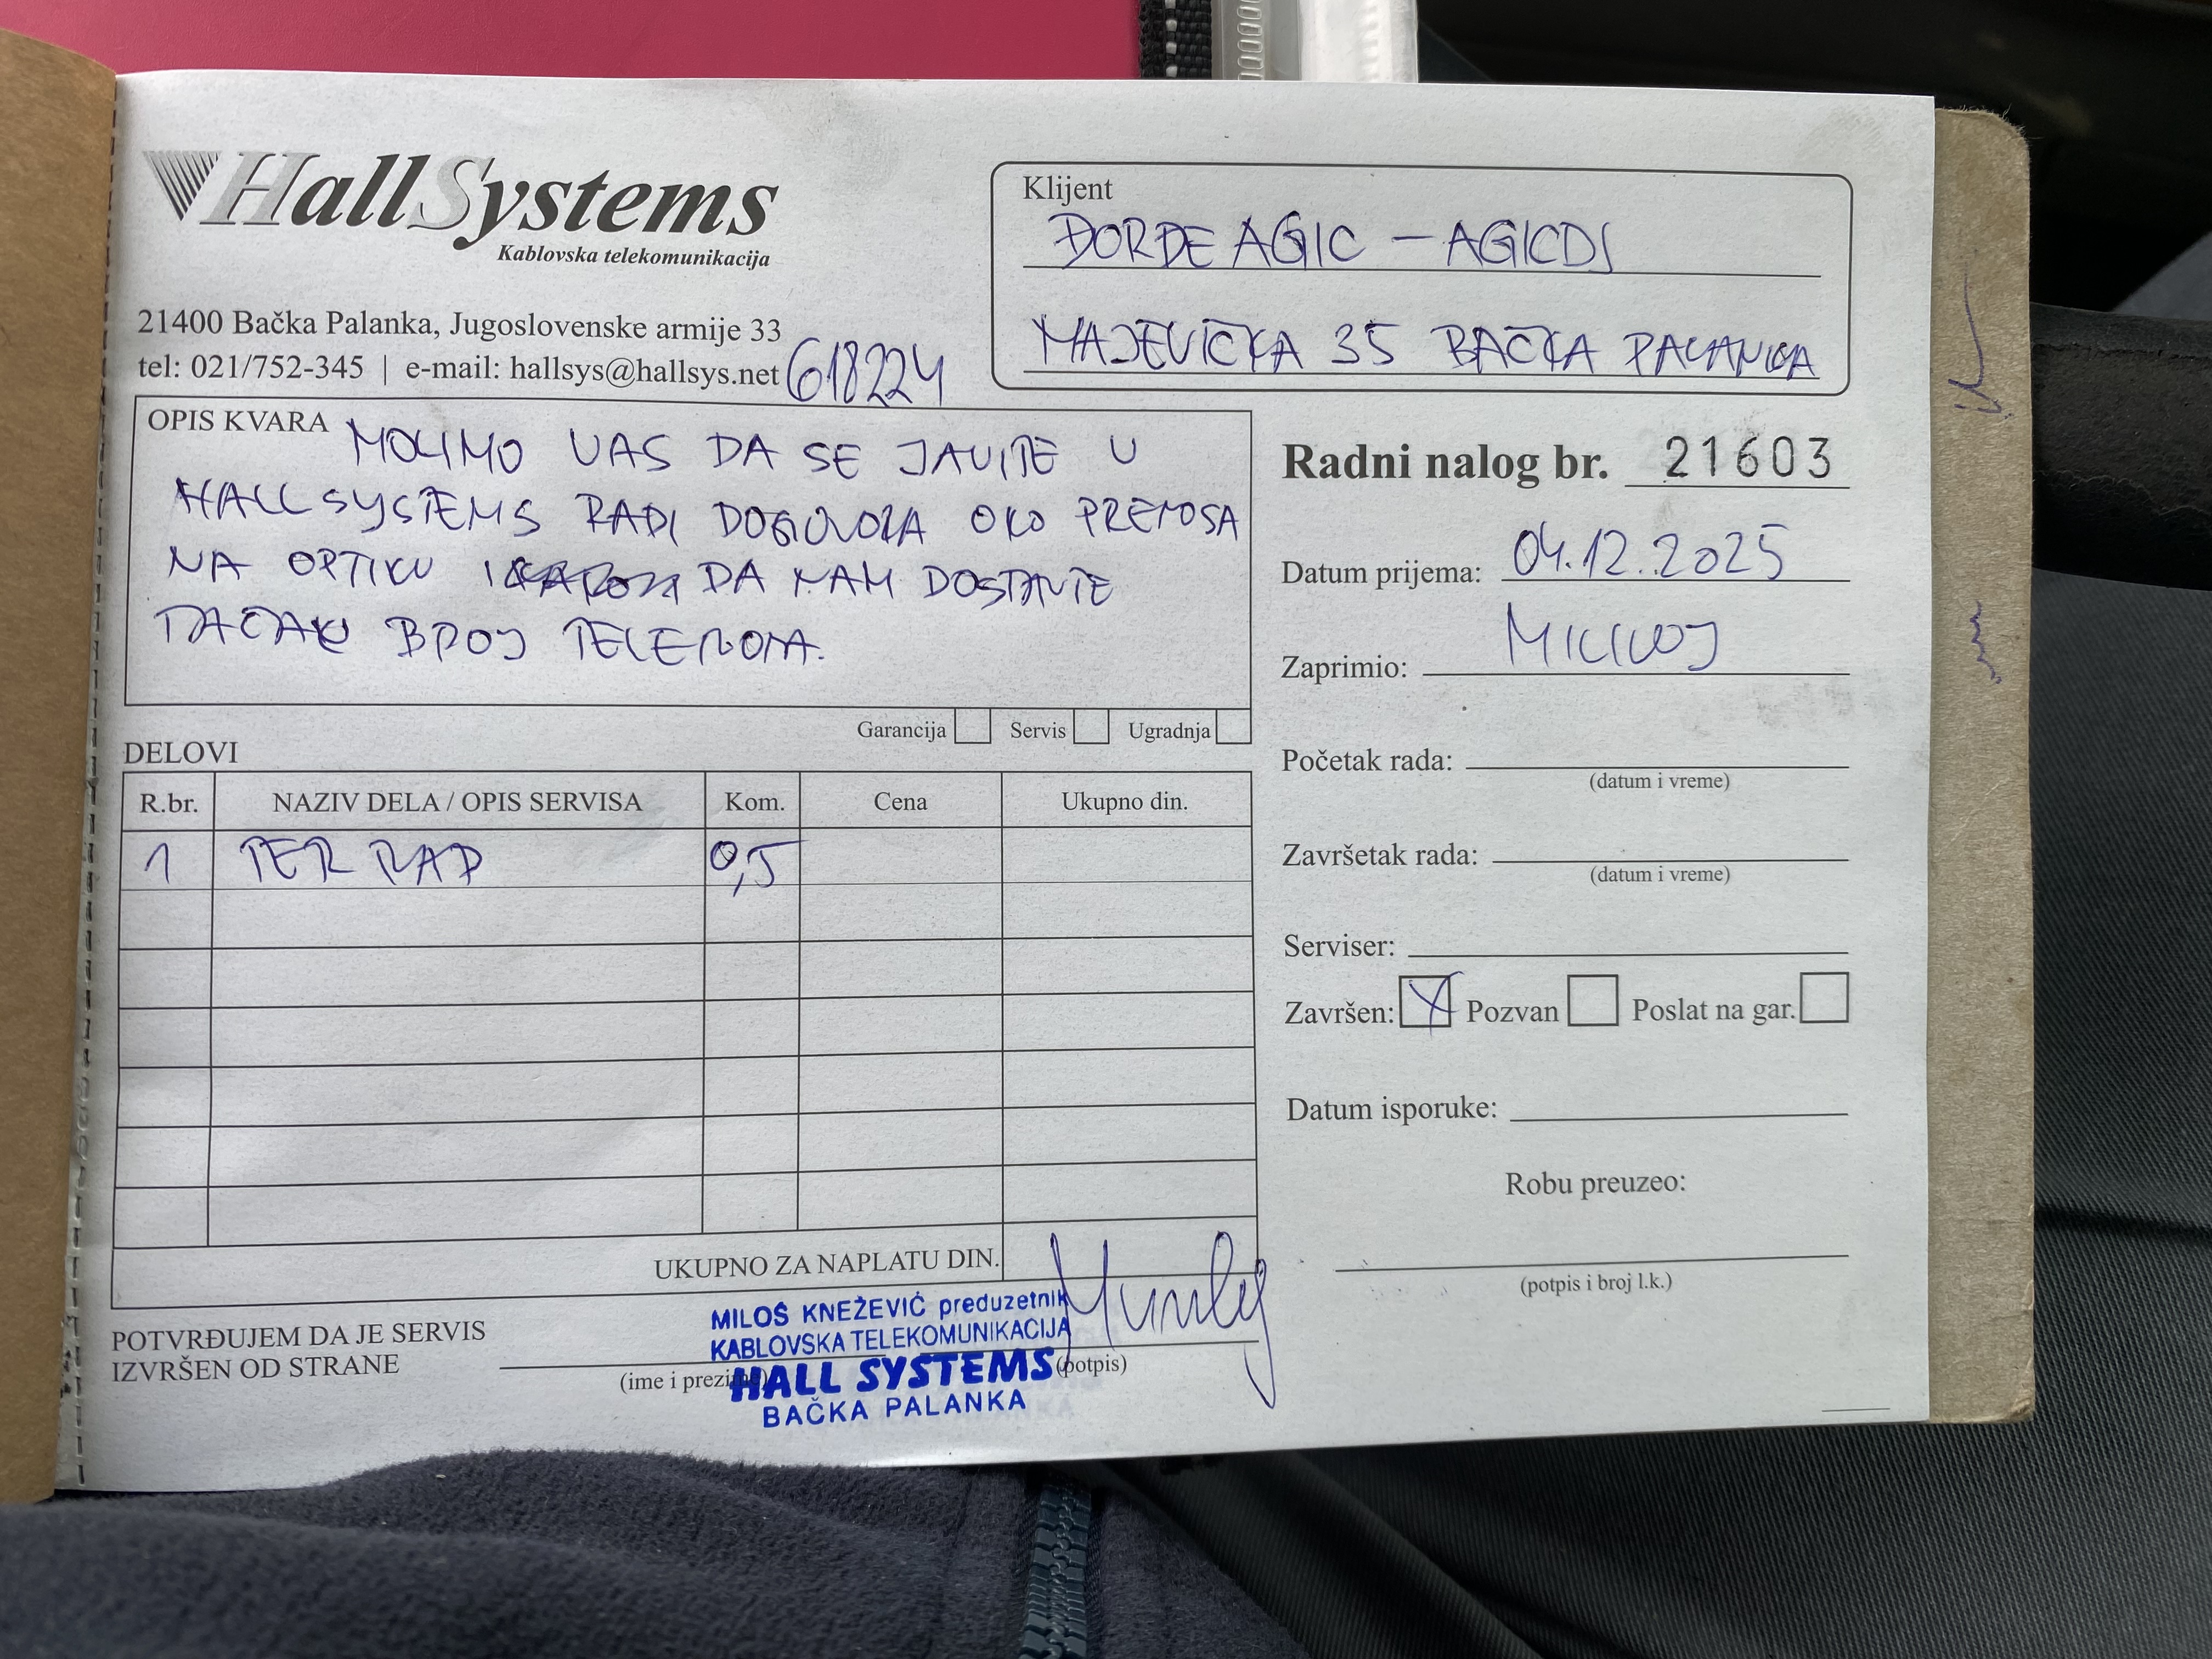 HallSystems
Kablovska telekomunikacija
21400 Bačka Palanka, Jugoslovenske armije 33
tel: 021/752-345 | e-mail: hallsys@hallsys.net
618224
Klijent
ĐORĐE AGIC – AGICDJ
MAJEVIČKA 35 BAČKA PALANKA
OPIS KVARA
MOLIMO VAS DA SE JAVITE U
HALL SYSTEMS RADI DOGOVORA OKO PRENOSA
NA OPTIKU I DA NAM DOSTAVITE
TAČAN BROJ TELEFONA.
Garancija Servis Ugradnja
Radni nalog br. 21603
Datum prijema: 04.12.2025
Zaprimio:
Početak rada:
(datum i vreme)
Završetak rada:
(datum i vreme)
Serviser:
Završen: X Pozvan Poslat na gar.
Datum isporuke:
Robu preuzeo:
(potpis i broj l.k.)
DELOVI
R.br. NAZIV DELA / OPIS SERVISA Kom. Cena Ukupno din.
1 TER RAD 0,5
UKUPNO ZA NAPLATU DIN.
POTVRĐUJEM DA JE SERVIS
IZVRŠEN OD STRANE
(ime i prezime)
(potpis)
MILOŠ KNEŽEVIĆ preduzetnik
KABLOVSKA TELEKOMUNIKACIJA
HALL SYSTEMS
BAČKA PALANKA